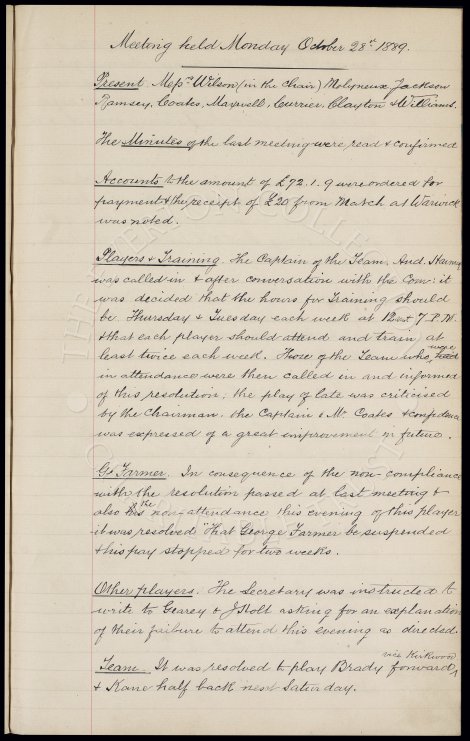 Meeting held Monday October 28th 1889.
Present. Messrs Wilson (in the chair) Molyneux, Jackson
Ramsey, Coates, Maxwell, Currier, Clayton & Williams.
The Minutes of the last meeting were read & confirmed
Accounts to the amount of £72.1.9 were ordered for
payment & the receipt of £20 from Match at Warwick
was noted.
Players & Training. The Captain of the Team, And. Hannah
was called in & after conversation with the Com: it
was decided that the hours for training should
be Thursday & Tuesday each week at 7 P.M.
& that each player should attend and train, at
least twice each week. Those of the Team who were
in attendance were then called in and informed
of this resolution; the play of late was criticised
by the Chairman, the Captain & Mr Coates & confidence
was expressed of a great improvement in future.
Go Farmer. In consequence of the non-compliance
with the resolution passed at last meeting &
also the non attendance this evening of this player
it was resolved "That George Farmer be suspended
& his pay stopped for two weeks.
Other players. The Secretary was instructed to
write to Geary & J Holt asking for an explanation
of their failure to attend this evening as directed.
Team. It was resolved to play Brady forward vice Kirkwood
& Kane half back next Saturday.